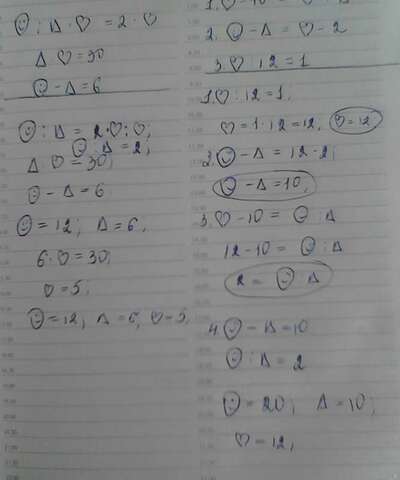 ☺ : Δ · ♡ = 2 · ♡
Δ · ♡ = 30
☺ - Δ = 6
☺ : Δ = 2·♡:♡,
☺ : Δ = 2;
Δ · ♡ = 30;
☺ - Δ = 6
☺ = 12; Δ = 6,
6·♡ = 30;
♡ = 5;
☺ = 12; Δ = 6, ♡ = 5.
1. ♡ - 10 = ☺ : Δ
2. ☺ - Δ = ♡ - 2
3. ♡ : 12 = 1
1. ♡ : 12 = 1,
♡ = 1·12 = 12, ♡ = 12
2. ☺ - Δ = 12 - 2;
☺ - Δ = 10,
3. ♡ - 10 = ☺ : Δ
12 - 10 = ☺ : Δ
2 = ☺ : Δ
4. ☺ - Δ = 10
☺ : Δ = 2
☺ = 20; Δ = 10;
♡ = 12,